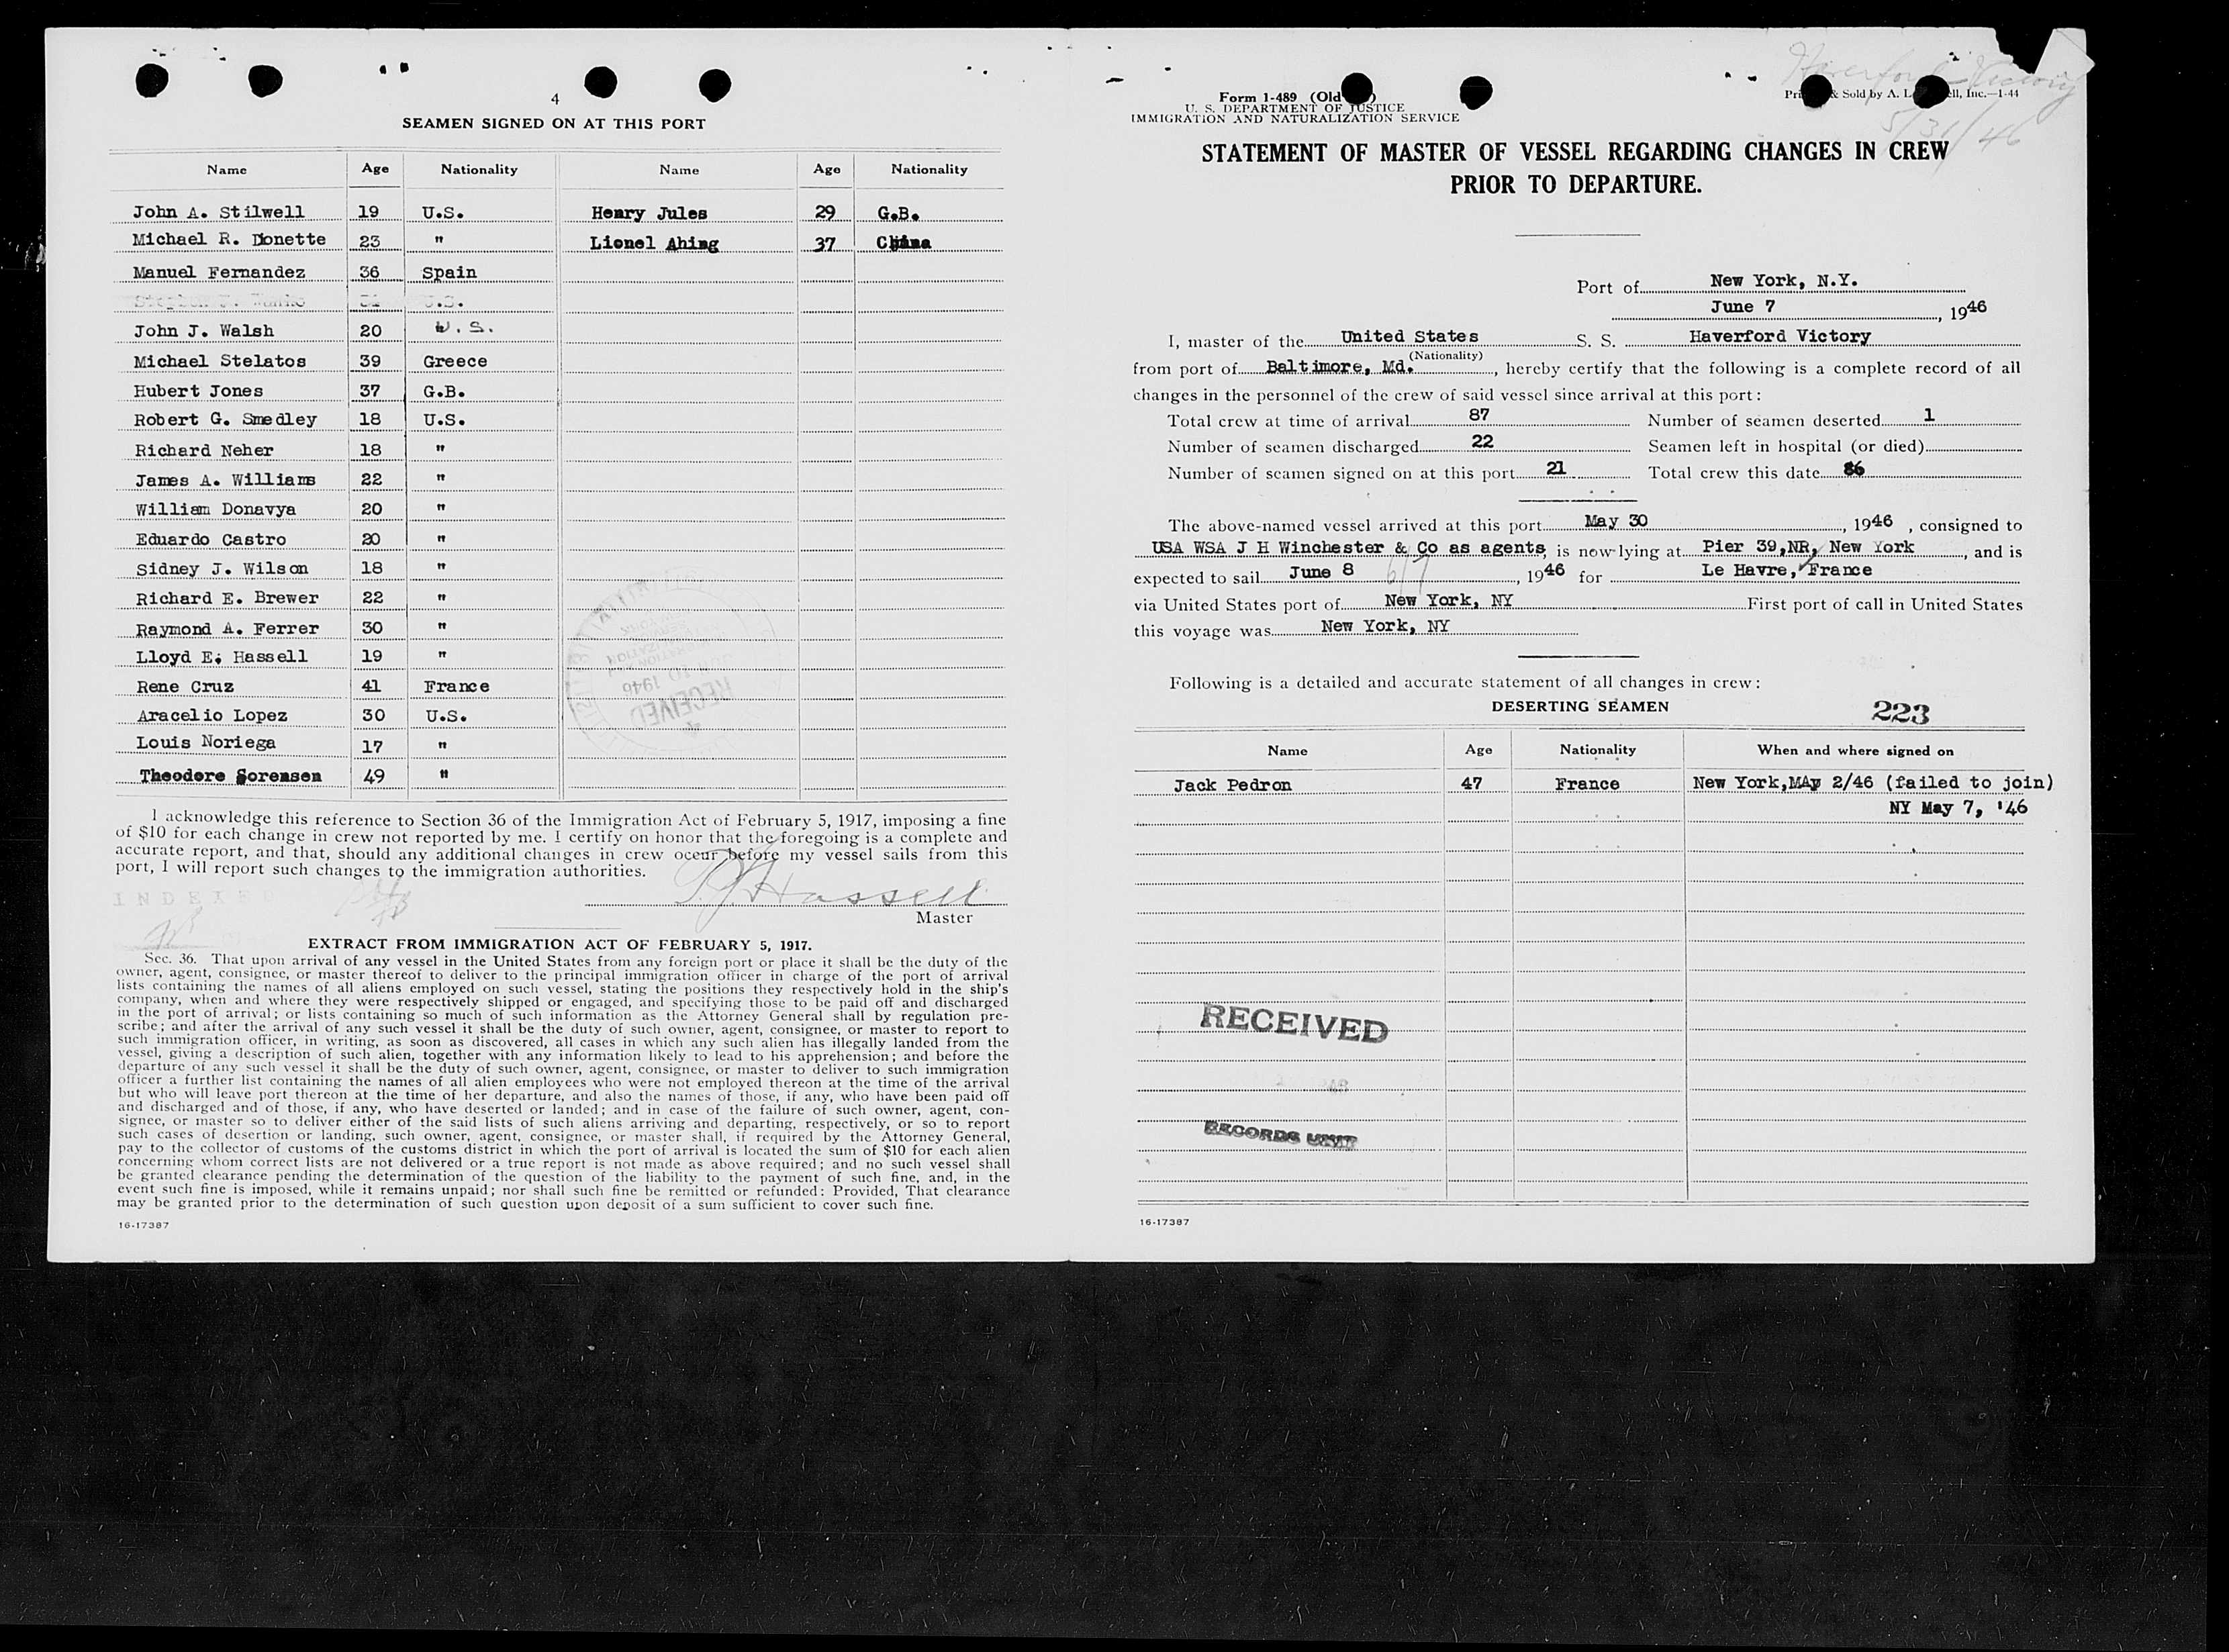 4
SEAMEN SIGNED ON AT THIS PORT
Name Age Nationality Name Age Nationality
John A. Stilwell 19 U.S. Henry Jules 29 G.B.
Michael R. Donette 23 " Lionel Ahing 37 China
Manuel Fernandez 36 Spain
U.S.
John J. Walsh 20 U.S.
Michael Stelatos 39 Greece
Hubert Jones 37 G.B.
Robert G. Smedley 18 U.S.
Richard Neher 18 "
James A. Williams 22 "
William Donavya 20 "
Eduardo Castro 20 "
Sidney J. Wilson 18 "
Richard E. Brewer 22 "
Raymond A. Ferrer 30 "
Lloyd E. Hassell 19 "
Rene Cruz 41 France
Aracelio Lopez 30 U.S.
Louis Noriega 17 "
Theodore Sorensen 49 "
RECEIVED
I acknowledge this reference to Section 36 of the Immigration Act of February 5, 1917, imposing a fine
of $10 for each change in crew not reported by me. I certify on honor that the foregoing is a complete and
accurate report, and that, should any additional changes in crew occur before my vessel sails from this
port, I will report such changes to the immigration authorities.
Hassell
Master
EXTRACT FROM IMMIGRATION ACT OF FEBRUARY 5, 1917.
Sec. 36. That upon arrival of any vessel in the United States from any foreign port or place it shall be the duty of the
owner, agent, consignee, or master thereof to deliver to the principal immigration officer in charge of the port of arrival
lists containing the names of all aliens employed on such vessel, stating the positions they respectively hold in the ship's
company, when and where they were respectively shipped or engaged, and specifying those to be paid off and discharged
in the port of arrival; or lists containing so much of such information as the Attorney General shall by regulation pre-
scribe; and after the arrival of any such vessel it shall be the duty of such owner, agent, consignee, or master to report to
such immigration officer, in writing, as soon as discovered, all cases in which any such alien has illegally landed from the
vessel, giving a description of such alien, together with any information likely to lead to his apprehension; and before the
departure of any such vessel it shall be the duty of such owner, agent, consignee, or master to deliver to such immigration
officer a further list containing the names of all alien employees who were not employed thereon at the time of the arrival
but who will leave port thereon at the time of her departure, and also the names of those, if any, who have been paid off
and discharged and of those, if any, who have deserted or landed; and in case of the failure of such owner, agent, con-
signee, or master so to deliver either of the said lists of such aliens arriving and departing, respectively, or so to report
such cases of desertion or landing, such owner, agent, consignee, or master shall, if required by the Attorney General,
pay to the collector of customs of the customs district in which the port of arrival is located the sum of $10 for each alien
concerning whom correct lists are not delivered or a true report is not made as above required; and no such vessel shall
be granted clearance pending the determination of the question of the liability to the payment of such fine, and, in the
event such fine is imposed, while it remains unpaid; nor shall such fine be remitted or refunded: Provided, That clearance
may be granted prior to the determination of such question upon deposit of a sum sufficient to cover such fine.
16-17387
Haverford Victory
5/31/46
Form 1-489 (Old
U. S. DEPARTMENT OF JUSTICE
IMMIGRATION AND NATURALIZATION SERVICE
& Sold by A. Inc.—1-44
STATEMENT OF MASTER OF VESSEL REGARDING CHANGES IN CREW
PRIOR TO DEPARTURE.
Port of New York, N.Y.
June 7, 1946
I, master of the United States S. S. Haverford Victory
(Nationality)
from port of Baltimore, Md., hereby certify that the following is a complete record of all
changes in the personnel of the crew of said vessel since arrival at this port:
Total crew at time of arrival 87 Number of seamen deserted 1
Number of seamen discharged 22 Seamen left in hospital (or died)
Number of seamen signed on at this port 21 Total crew this date 86
The above-named vessel arrived at this port May 30, 1946, consigned to
USA WSA J H Winchester & Co as agents, is now lying at Pier 39,NR, New York, and is
expected to sail June 8 6/7, 1946 for Le Havre, France
via United States port of New York, NY First port of call in United States
this voyage was New York, NY
Following is a detailed and accurate statement of all changes in crew:
DESERTING SEAMEN 223
Name Age Nationality When and where signed on
Jack Pedron 47 France New York,MAy 2/46 (failed to join)
NY May 7, '46
RECEIVED
RECORDS UNIT
16-17387